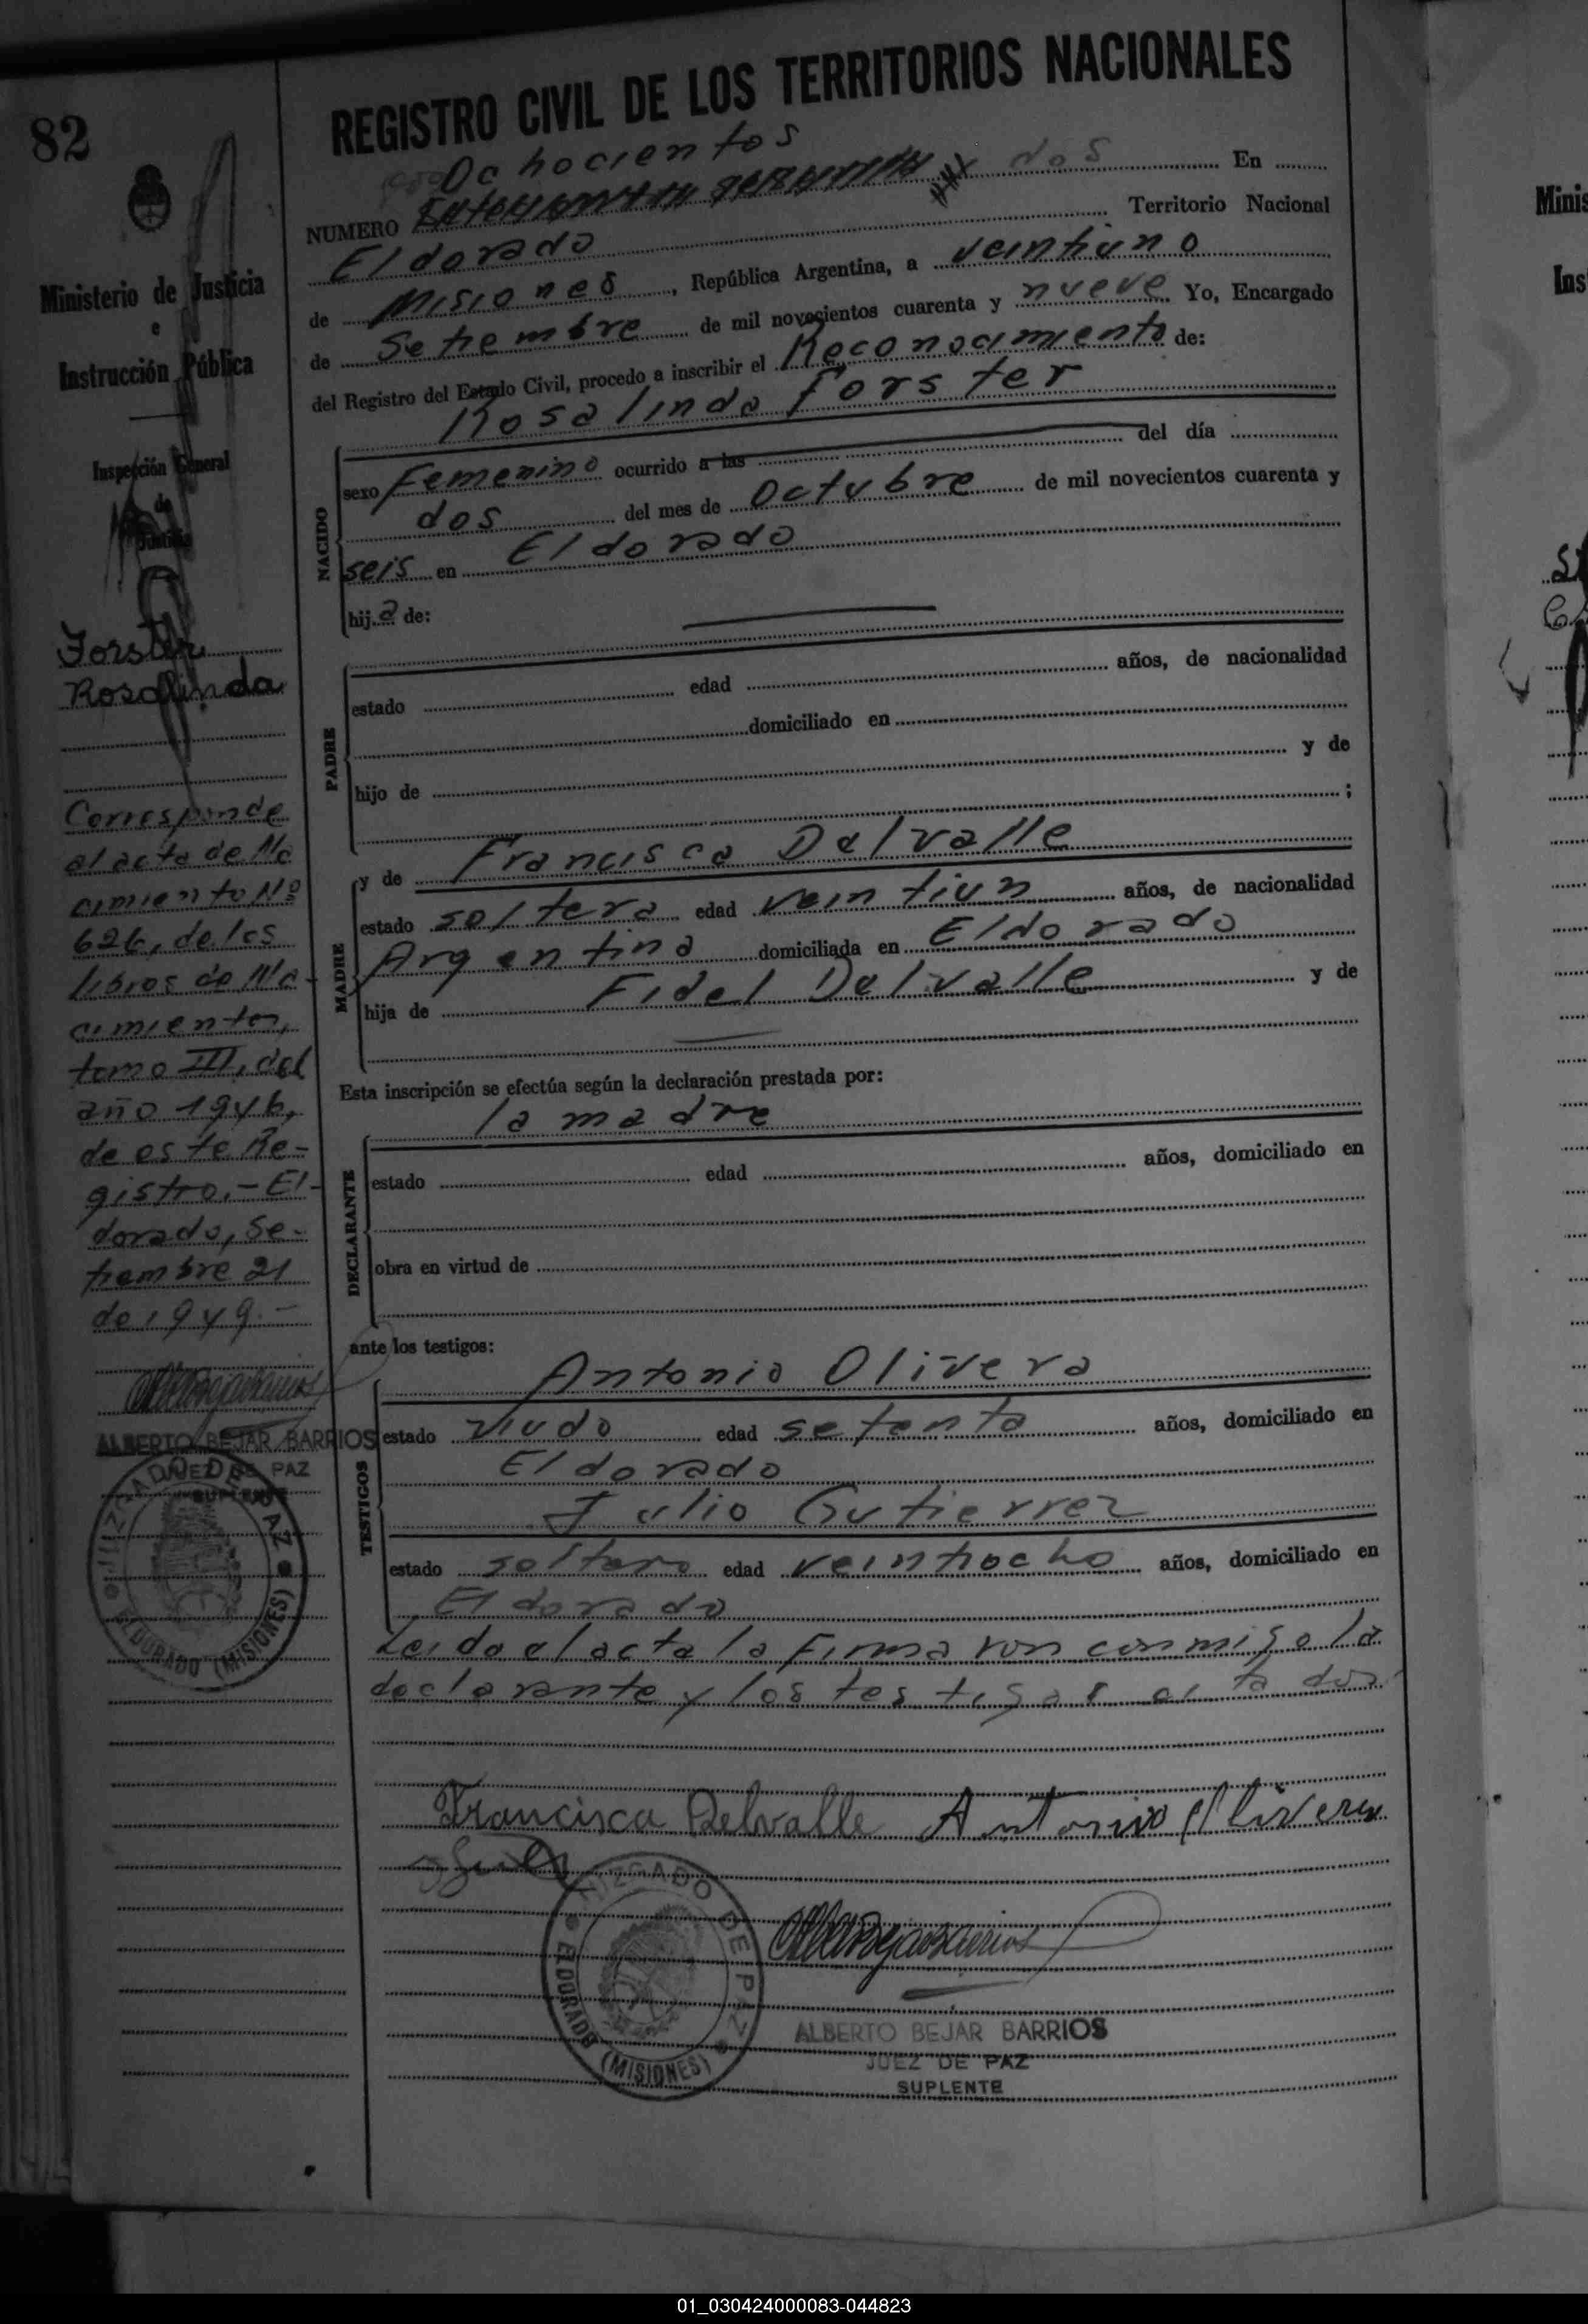 82
REGISTRO CIVIL DE LOS TERRITORIOS NACIONALES
Ochocientos
NUMERO dos En
Eldorado Territorio Nacional
de Misiones, República Argentina, a veintiuno
de Setiembre de mil novecientos cuarenta y nueve Yo, Encargado
del Registro del Estado Civil, procedo a inscribir el Reconocimiento de:
Rosalinda Forster
NACIDO
sexo Femenino ocurrido a las del día
dos del mes de Octubre de mil novecientos cuarenta y
seis en Eldorado
hija de:
PADRE
estado edad años, de nacionalidad
domiciliado en
hijo de y de
;
MADRE
y de Francisca Delvalle
estado soltera edad veintiun años, de nacionalidad
Argentina domiciliada en Eldorado
hija de Fidel Delvalle y de
Esta inscripción se efectúa según la declaración prestada por:
la madre
DECLARANTE
estado edad años, domiciliado en
obra en virtud de
ante los testigos:
TESTIGOS
Antonio Olivera
estado viudo edad setenta años, domiciliado en
Eldorado
Julio Gutierrez
estado soltero edad veintiocho años, domiciliado en
Eldorado
Leida el acta la firmaron conmigo la
declarante y los testigos citados
Francisca Delvalle Antonio Olivera
JUZGADO DE PAZ
ELDORADO (MISIONES)
ALBERTO BEJAR BARRIOS
JUEZ DE PAZ
SUPLENTE
Ministerio de Justicia
e
Instrucción Pública
Inspección General
de
Justicia
Forster
Rosalinda
Corresponde
al acta de Na
cimiento Nº
626, de los
libros de Na-
cimientos,
tomo III, del
año 1946,
de este Re-
gistro.- El-
dorado, Se-
tiembre 21
de 1949.-
ALBERTO BEJAR BARRIOS
JUEZ DE PAZ
SUPLENTE
JUZGADO DE PAZ
ELDORADO (MISIONES)
Minis
Ins
01_030424000083-044823